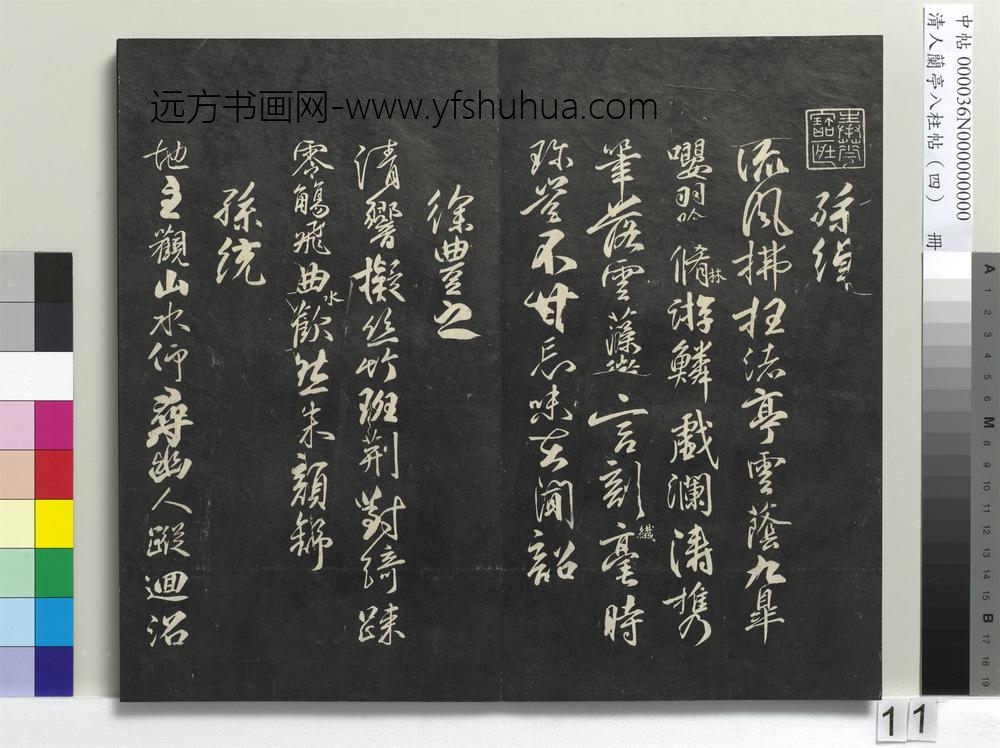 远方书画网-www.yfshuhua.com
中帖 000036N000000000
清人蘭亭八柱帖(四) 冊
孫綽
流風拂枉渚亭雲蔭九皐
嚶羽吟脩林游鱗戲瀾濤攜
筆落雲藻微言剖纖毫時
珍豈不甘忘味在聞韶
徐豐之
清響擬絲竹班荊對綺疎
零觴飛曲水歡然朱顏舒
孫統
地主觀山水仰尋幽人蹤迴沼
A 1 2 3 4 5 6 M 8 9 10 11 12 13 14 15 B 17 18 19
11